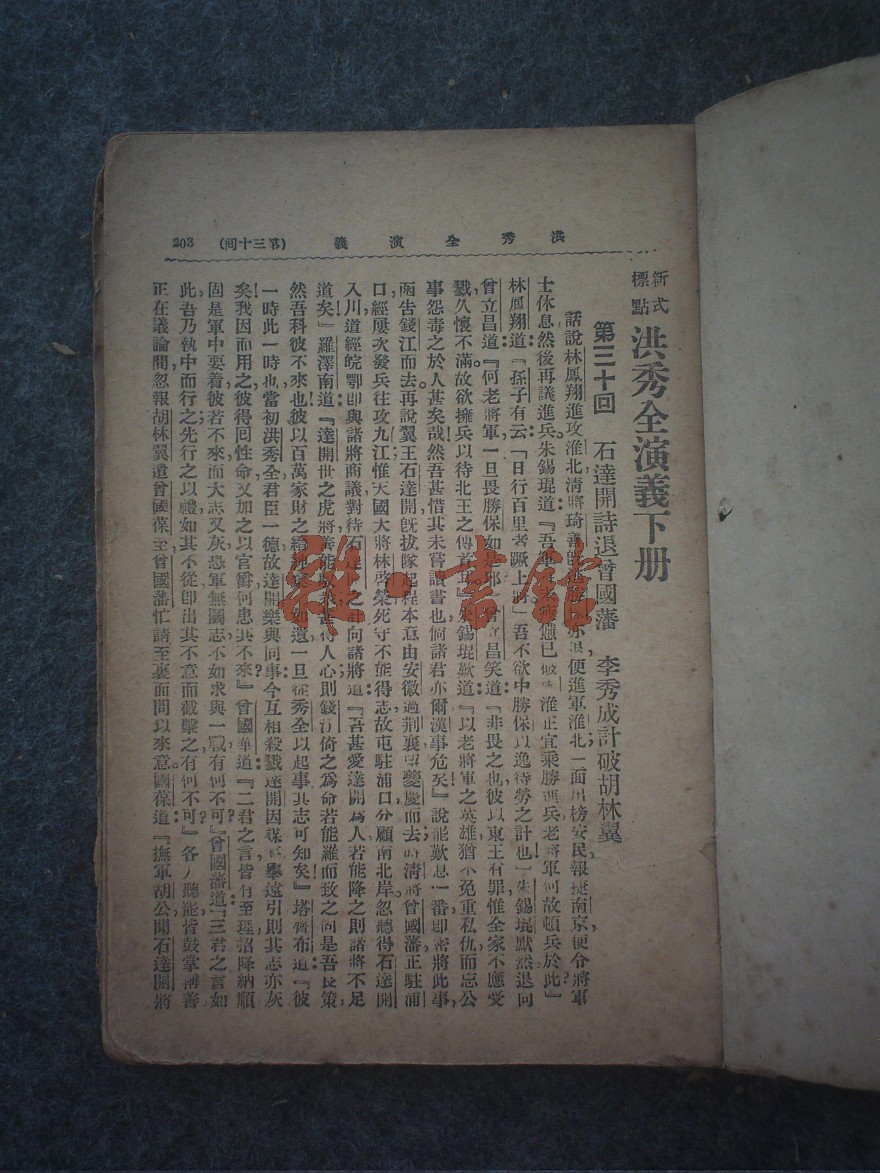 洪秀全演義 (第三十回) 203
新式標點 洪秀全演義下册
第三十回 石達開詩退曾國藩 李秀成計破胡林翼
話說林鳳翔進攻淮北清將琦善 便進軍淮北一面出榜安民報捷南京便令將軍
士休息然後再議進兵朱錫琨道『吾軍 淮正宜乘勝進兵老將軍何故頓兵於此』
林鳳翔道『孫子有云「日行百里者蹶上將」吾不欲中勝保以逸待勞之計也』朱錫琨默然退向
曾立昌道『何老將軍一旦畏勝保如是耶』曾立昌笑道『非畏之也彼以東王有罪惟全家不應受
戮久懷不滿故欲擁兵以待北王之 錫琨歎道『以老將軍之英雄猶不免重私仇而忘公
事怨毒之於人甚矣哉然吾甚惜其未嘗讀書也倘諸君亦爾漢事危矣』說罷歎息一番即密將此事
函告錢江而去再說翼王石達開旣拔隊起程本意由安徽過荆襄 夔慶而去時清將曾國藩正駐浦
口經屢次發兵往攻九江惟天國大將林啓榮死守不能得志故屯駐浦口分顧南北岸忽聽得石達開
入川道經皖鄂即與諸將商議對待石達 之計向諸將道『吾甚愛達開爲人若能降之則諸將不足
道矣』羅澤南道『達開世之虎將善能 得人心則錢江倚之爲命若能羅而致之向是吾長策
然吾料彼不來也彼以百萬家財之 如遺一旦從秀全以起事其志可知矣』塔齊布道『彼
一時此一時也當初洪秀全君臣一德故達開樂與同事今互相殺戮達開因謀 舉遠引則其志亦灰
矣我因而用之彼得回性命又加之以官爵何患其不來』曾國華道『二君之言皆有至理招降納順
固是軍中要着彼若不來而大志又灰恐軍無鬬志不如求與一戰有何不可』曾國藩道『三君之言如
此吾乃執中而行之先行之以禮如其不從即出其不意而截擊之有何不可』各人聽罷皆鼓掌稱善
正在議論間忽報胡林翼遣曾國葆至曾國藩忙請至裏面問以來意國葆道『撫軍胡公聞石達開將